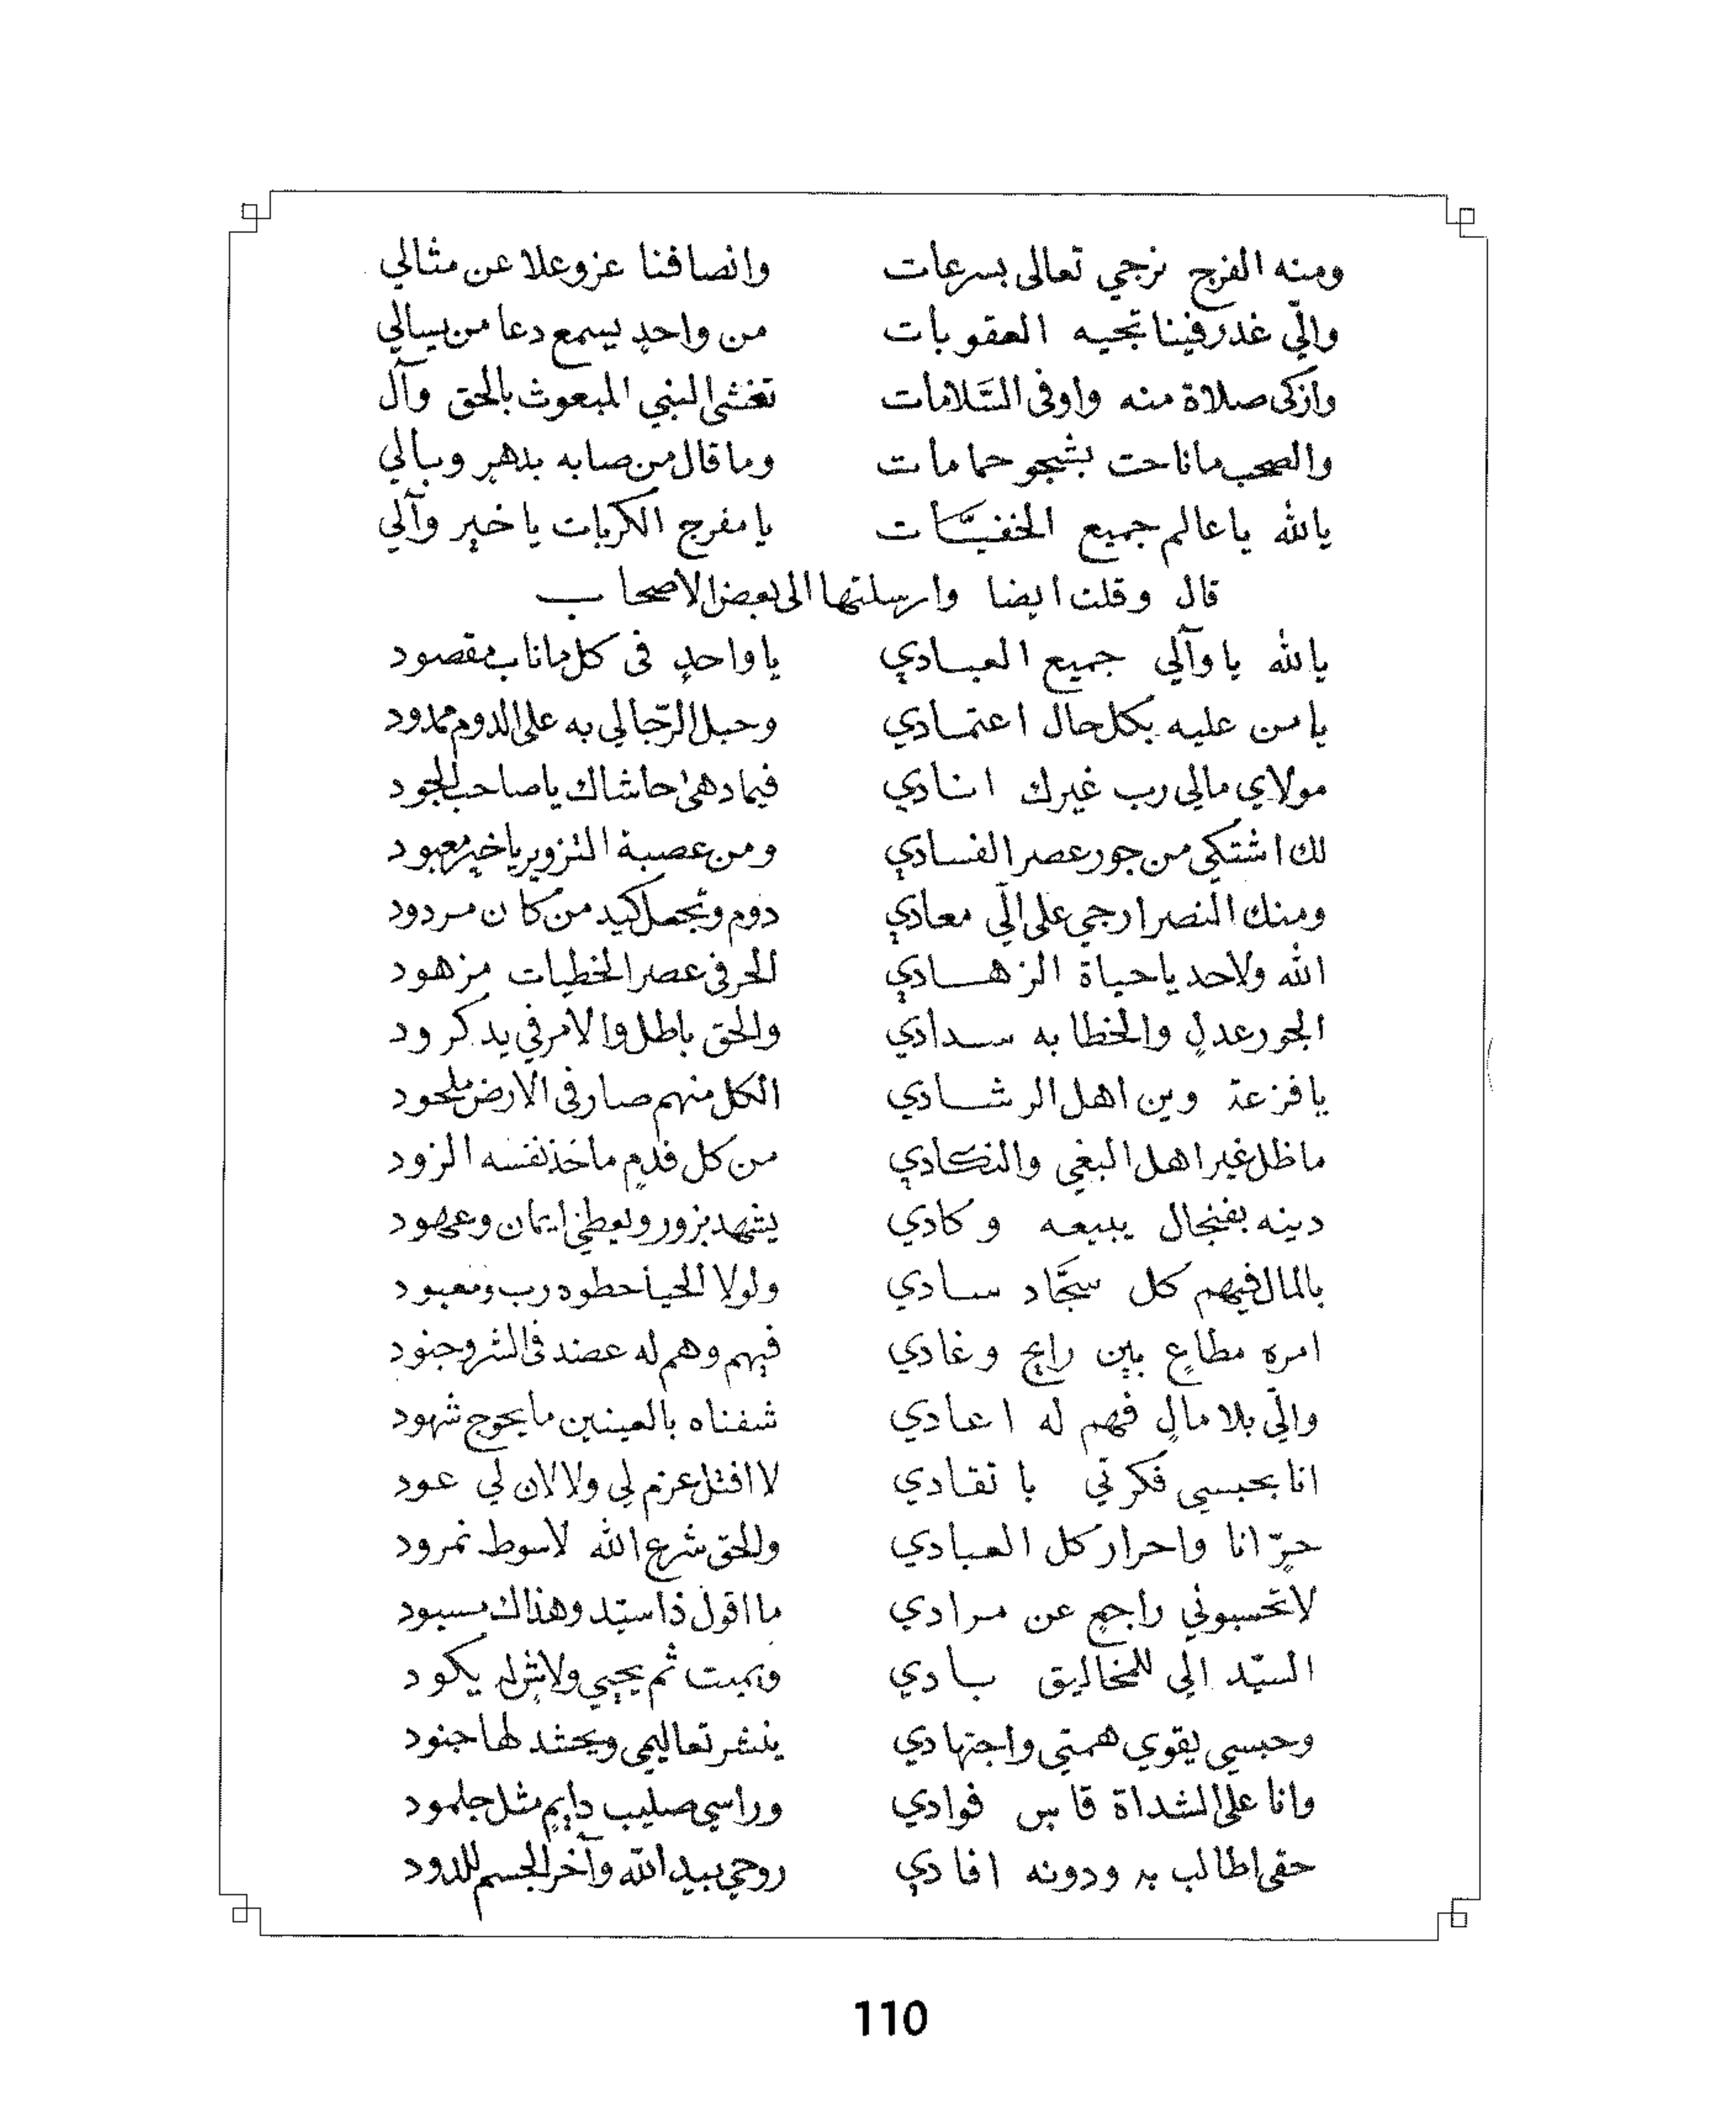 ومنه الفرج نرجي تعالى بسرعات وانصافنا عزوعلا عن مثالي
والّي غدر فينا تجيه العقوبات من واحدٍ يسمع دعا من يسالي
وازكى صلاة منه واوفى السَّلامات تغشى النبي المبعوث بالحق وآل
والصحب ما ناحت بشجو حمامات وما قال من صابه بدهرٍ وبالي
يالله يا عالم جميع الخفيَّات يا مفرج الكربات يا خير وآلي
قال وقلت ايضا وارسلتها الى بعض الاصحاب
يالله يا وآلي جميع العبادي يا واحدٍ في كل ما ناب مقصود
يا من عليه بكل حال اعتمادي وحبل الرّجا لي به على الدوم ممدود
مولاي مالي رب غيرك انادي فيما دهى حاشاك يا صاحب الجود
لك اشتكي من جور عصر الفسادي ومن عصبة التزوير يا خير معبود
ومنك النصر ارجي على الّي معادي دوم وتجعل كيد من كان مردود
الله ولاحد يا حياة الزهادي الحر في عصر الخطيات مزهود
الجور عدلٍ والخطا به سدادي والحق باطل والامر في يد كرود
يا فزعة وين اهل الرشادي الكل منهم صار في الارض ملحود
ما ظل غير اهل البغي والنكادي من كل فدمٍ ماخذ نفسه الزود
دينه بفنجال يبيعه وكادي يشهد بزور ويعطي ايمان وعهود
بالمال فيهم كل سجَّاد سادي ولولا الحيا حطوه رب ومعبود
امره مطاعٍ بين رايح وغادي فيهم وهم له عضد في الشر وجنود
والّي بلا مالٍ فهم له اعادي شفناه بالعينين ما يحوج شهود
انا بحبسي فكرتي با تقادي لا افتل عزم لي ولا لان لي عود
حرّ انا واحرار كل العبادي والحق شرع الله لا سوط نمرود
لا تحسبوني راجعٍ عن مرادي ما اقول ذا سيّد وهذاك مسيود
السيّد الّي للمخاليق بادي ويميت ثم يحيي ولا شٍ له يكود
وحبسي يقوي همتي واجتهادي ينشر تعاليمي ويحشد لها جنود
وانا على الشداة قاس فوادي وراسي صليب دايمٍ مثل جلمود
حقي اطالب به ودونه افادي روحي بيد الله وآخر الجسم للدود
110